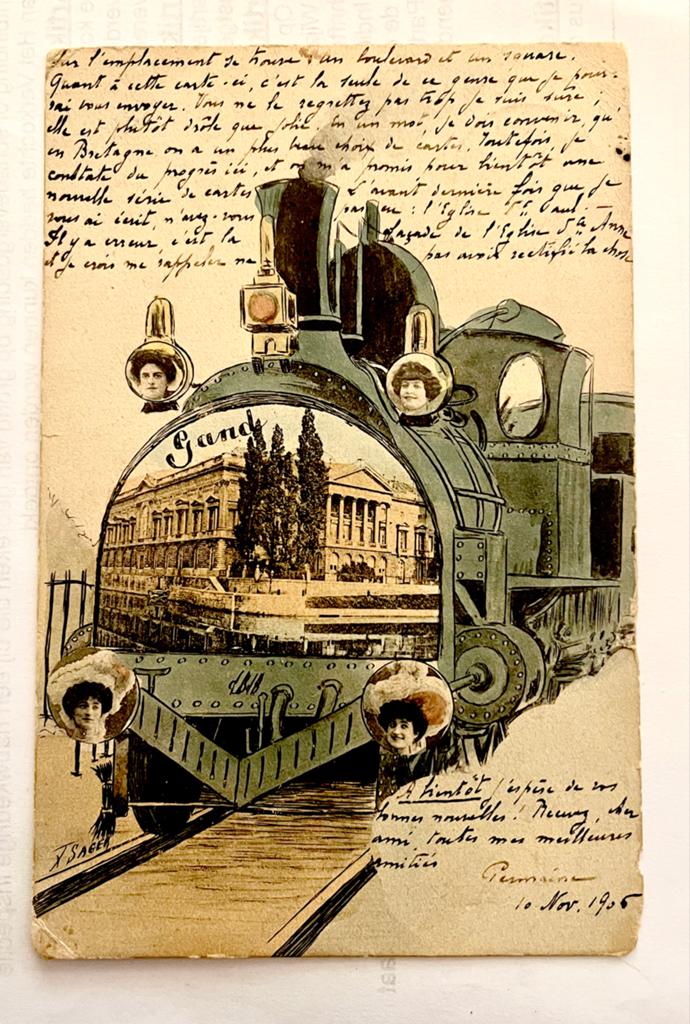 Sur l'emplacement se trouve un boulevard et un square.
Quant à cette carte-ci, c'est la seule de ce genre que je pour-
rai vous envoyer. Vous ne le regrettez pas trop je suis sûre;
elle est plutôt drôle que jolie. En un mot, je dois convenir, qu'
en Bretagne on a un plus beau choix de cartes. Toutefois, je
constate du progrès ici, et on m'a promis pour bientôt une
nouvelle série de cartes L'avant dernière fois que je
vous ai écrit, n'avez-vous pas eu: l'Eglise St Paul:
Il y a erreur c'est la façade de l'Eglise Ste Anne
et je crois me rappeler ne pas avoir rectifié la chose
Gand
A bientôt j'espère de vos
bonnes nouvelles! Recevez, cher
ami, toutes mes meilleures
amitiés
Germaine
10 Nov. 1906
X SAGER